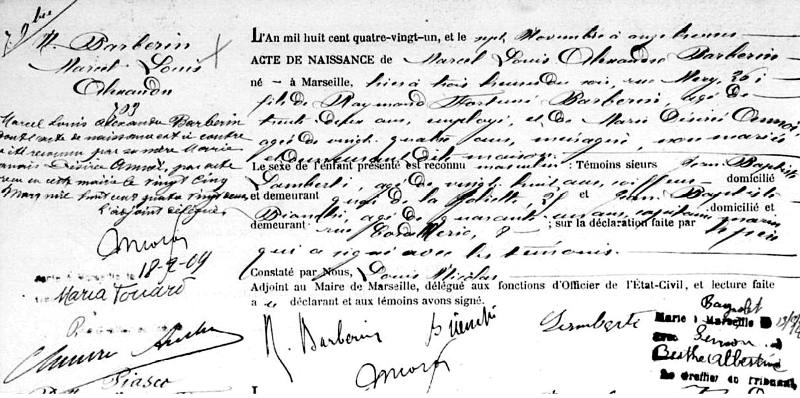 7 9bre
M. Barberin
Marcel Louis
Alexandre
Marcel Louis Alexandre Barberin
dont l'acte de naissance est ci contre
a été reconnu par sa mère Marie
Désirée par acte
reçu en cette mairie le vingt cinq
Mars mil huit cent quatre vingt deux
L'adjoint délégué
18-2-09
Maria Touaro
Piasco
L'An mil huit cent quatre-vingt-un, et le sept Novembre à onze heures
ACTE DE NAISSANCE de Marcel Louis Alexandre Barberin
né à Marseille, hier à trois heures du soir, rue Mery, 20 ;
fils de Raymond Barberin, âgé de
trente deux ans, employé, et de Marie Désirée
âgée de vingt quatre ans, ménagère, non mariés
et demeurant dite maison
Le sexe de l'enfant présenté est reconnu masculin : Témoins sieurs Jean Baptiste
Lamberti, âgé de vingt huit ans, coiffeur domicilié
et demeurant quai de la Joliette, et Jean Baptiste
Bianchi, âgé de quarante un ans, capitaine marin domicilié et
demeurant rue Cavallerie, 8 ; sur la déclaration faite par le père
qui a signé avec les témoins.
Constaté par Nous, Louis Nicolas
Adjoint au Maire de Marseille, délégué aux fonctions d'Officier de l'État-Civil, et lecture faite
a u déclarant et aux témoins avons signé.
R. Barberin Bianchi Lamberti
Marié à Marseille
avec
Berthe Albertine
Le Greffier du Tribunal